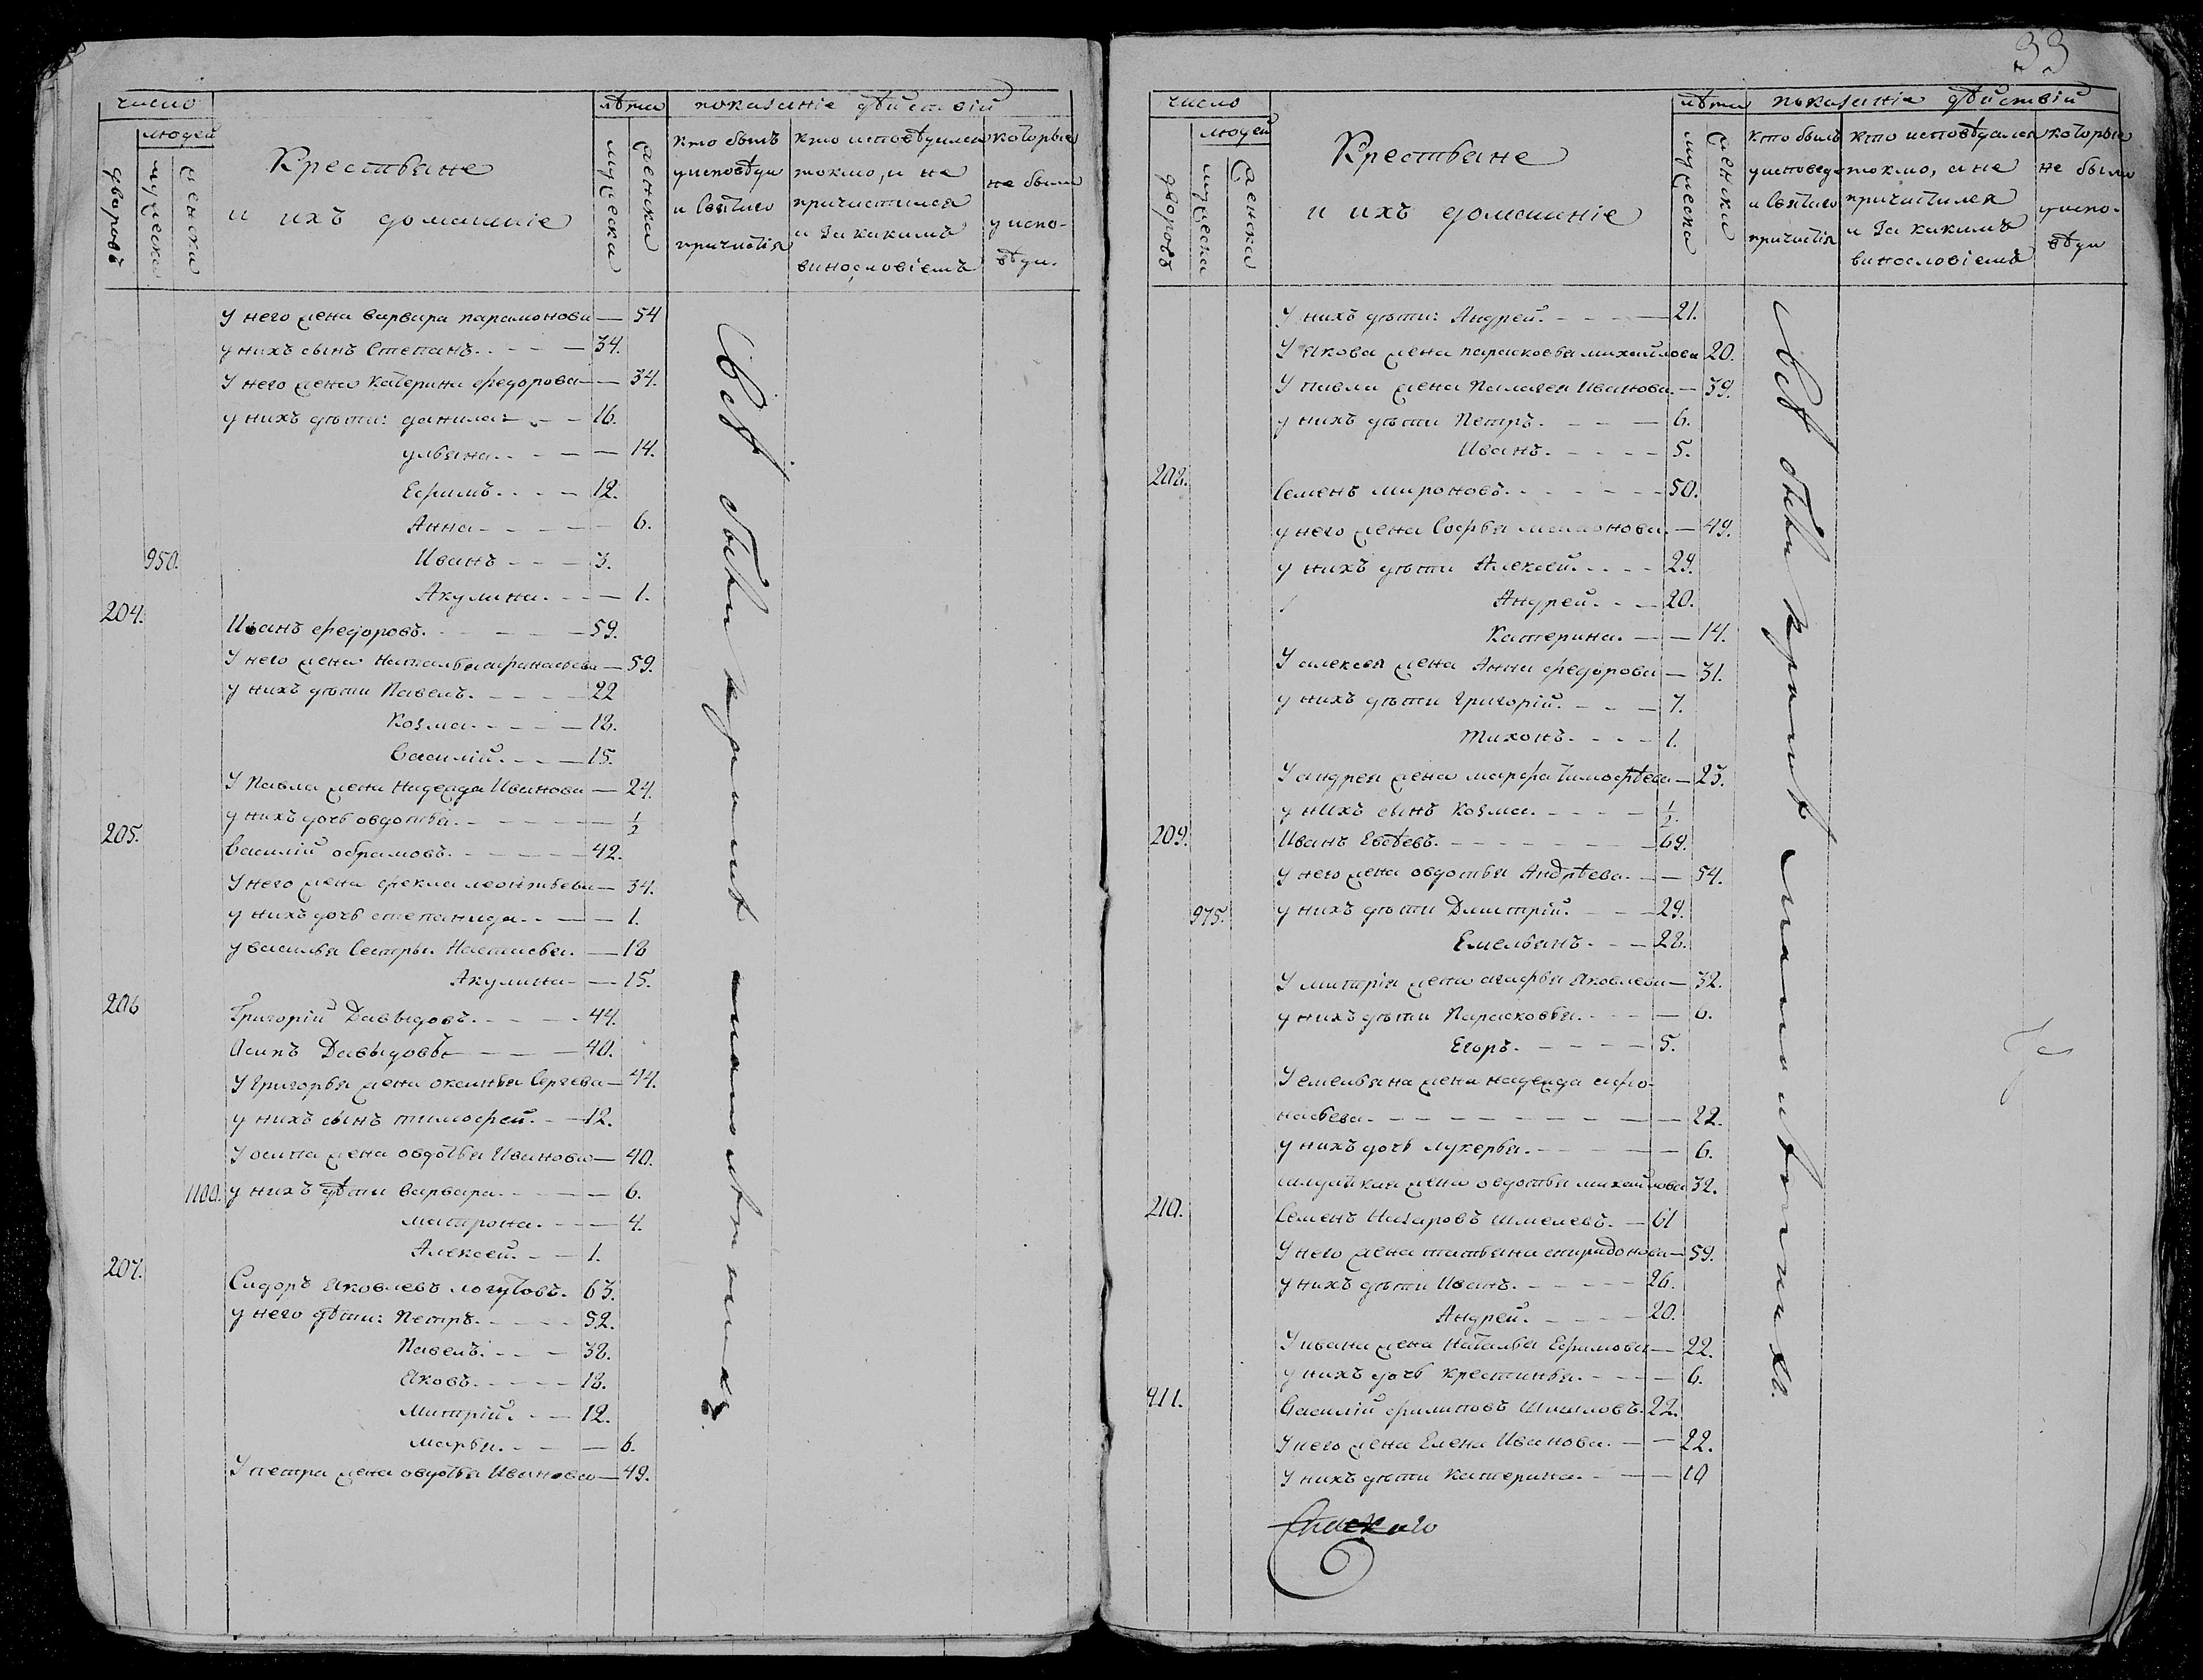 число
людей
дворовъ
мужеска
женска
Крестьяне
и ихъ домашніе
лѣта
мужеска
женска
показаніе дѣйствій
кто былъ
у исповѣди
и Святаго
причастія
кто исповѣдался
токмо, и не
причастился
и За какимъ
винословіемъ
которые
не были
у испо-
вѣди.
У него жена варвара парамонова — 54
у нихъ сынъ Степанъ. — 34.
У него жена Катерина федорова — 34.
у нихъ дѣти: данила — 16.
ульяна. — 14.
Ефимъ. — 12.
Анна — 6.
950. Иванъ — 3.
Акулина. — 1.
204. Иванъ федоровъ. — 59.
У него жена Наталья афанасьева — 59.
у нихъ дѣти Павелъ. — 22
Козма. — 18.
Василій. — 15.
У Павла жена Надежда Иванова — 24.
у нихъ дочь овдотья. — 1/2
205. Василій обрамовъ. — 42.
У него жена фекла леонтьева — 34.
у нихъ дочь степанида. — 1.
у василья Сестры Настасья. — 18
Акулина — 15.
206 Григорій Давыдовъ. — 44.
Осипъ Давыдовъ — 40.
У Григорья жена оксинья Сергева — 44.
у нихъ сынъ тимофей. — 12.
У осипа жена овдотья Иванова — 40.
1100. у нихъ дѣти варвара. — 6.
матрона. — 4.
Алексей. — 1.
207. Сидоръ Яковлевъ логутовъ. 63.
у него дѣти: Петръ. — 52.
Павелъ. — 38.
Яковъ. — 18.
Митрій. — 12.
марья. — 6.
У петра жена овдотья Иванова — 49.
всѣ были кромѣ малолѣтнихъ.
33
число
людей
дворовъ
мужеска
женска
Крестьяне
и ихъ домашніе
лѣта
мужеска
женска
показаніе дѣйствій
Кто былъ
у исповеди
и Святаго
причастія
кто исповѣдался
токмо, а не
причастился
и За какимъ
винословіемъ
которые
не были
у испо-
вѣди
У нихъ дѣти: Андрей. — 21.
У якова жена параскоевья михайлова 20.
У павла жена Палагея Иванова. — 39.
у нихъ дѣти Петръ. — 6.
Иванъ. — 5.
208. Семенъ мироновъ. — 50.
у него жена Софья мамонова. — 49.
у нихъ дѣти Алексей. — 29.
Андрей. — 20.
Катерина. — 14.
У алексея жена Анна федорова — 31.
у нихъ дѣти Григорій. — 7.
тихонъ. — 1.
У андрея жена марфа тимофѣева — 23.
у нихъ сынъ Козма. — 1/2.
209. Иванъ Евсѣевъ. — 69.
у него жена овдотья Андрѣева. — 54.
975. у нихъ дѣти Дмитрій. — 29.
Емельянъ. — 28.
У митрія жена агафья Яковлева — 32.
у нихъ дѣти Парасковья. — 6.
Егоръ. — 5.
У емельяна жена надежда афо-
насьева. — 22.
у нихъ дочь лукерья. — 6.
жена овдотья михайлова 32.
210. Семенъ Назаровъ шмелевъ. — 61
У него жена татьяна спиридонова — 59.
у нихъ дѣти Иванъ. — 26.
Андрей. — 20.
У ивана жена Наталья Ефимова — 22.
у нихъ дочь крестинья. — 6.
211. Василій филиповъ Шишловъ. 22.
У него жена Елена Иванова. — 22.
У нихъ дѣти Катерина. — 10
всѣ были кромѣ малолѣтнихъ.
Спаскаго